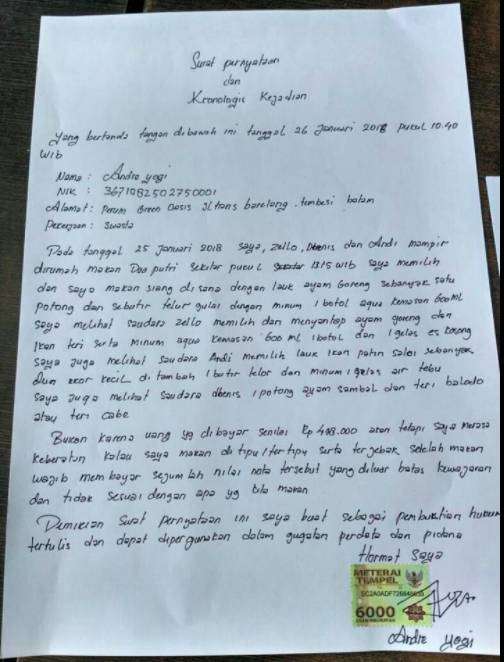 Surat pernyataan
dan
Kronologis Kejadian
Yang bertanda tangan dibawah ini tanggal 26 Januari 2018 pukul 10.40
WIB
Nama : Andre yogi
NIK : 3671082502750001
Alamat : Perum Green Oasis Jl trans barelang . tembesi batam
Pekerjaan : Swasta
Pada tanggal 25 Januari 2018 saya, zello, Dbenis dan Andi mampir
dirumah makan Dua putri sekitar pukul 13.15 wib saya memilih
dan saya makan siang disana dengan lauk ayam Goreng sebanyak satu
potong dan sebutir telur gulai dengan minum 1 botol aqua kemasan 600 ml
saya melihat saudara zello memilih dan menyantap ayam goreng dan
Ikan teri serta minum aqua kemasan 600 ml 1 botol dan 1 gelas es kosong
saya juga melihat saudara Andi memilih lauk ikan patin salai sebanyak
dua ekor kecil di tambah 1 butir telor dan minum 1 gelas air tebu
saya juga melihat saudara dbenis 1 potong ayam sambal dan teri balado
atau teri cabe
Bukan karena uang yg dibayar senilai Rp 498.000 akan tetapi saya merasa
keberatan kalau saya makan di tipu/tertipu serta terjebak setelah makan
wajib membayar sejumlah nilai nota tersebut yang diluar batas kewajaran
dan tidak sesuai dengan apa yg kita makan
Demikian surat pernyataan ini saya buat sebagai pembuktian hukum
tertulis dan dapat dipergunakan dalam gugatan perdata dan pidana
Hormat saya
METERAI
TEMPEL
6000
ENAM RIBU RUPIAH
Andre yogi